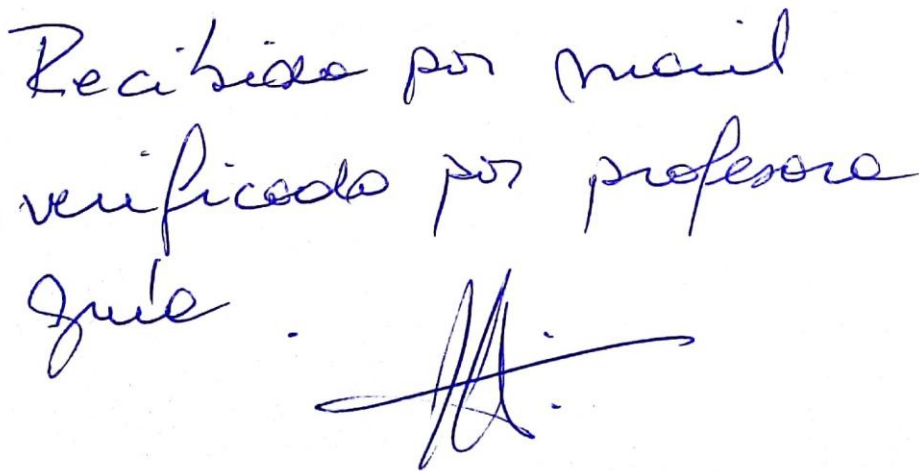 Recibido por mail
verificado por profesora
guía.